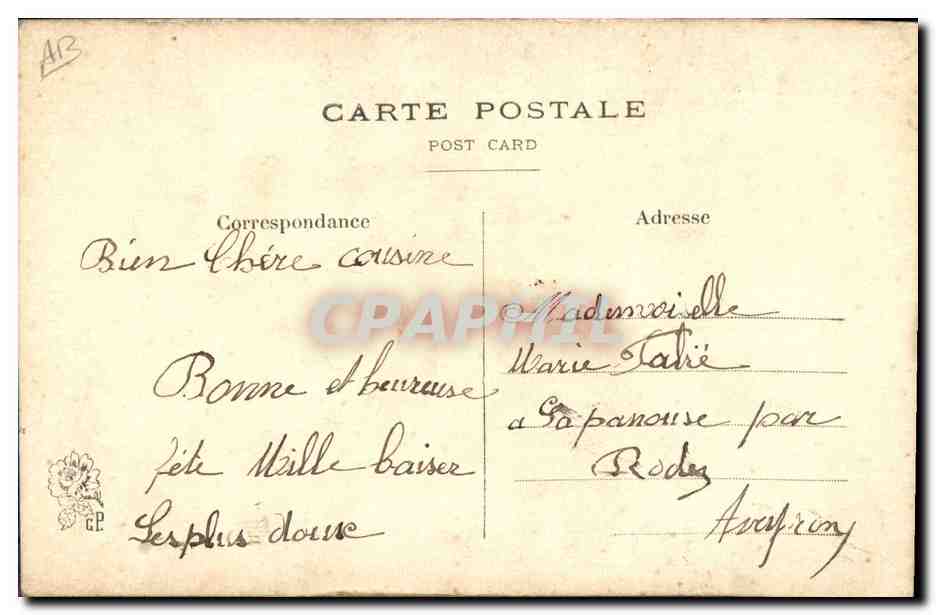 AB
CARTE POSTALE
POST CARD
Correspondance
Bien Chére cousine
Bonne et heureuse
fête Mille baiser
Les plus doux
GP
Adresse
Mademoiselle
Marie
a Lapanouse par
Rodez
Aveyron
CPAPHIL